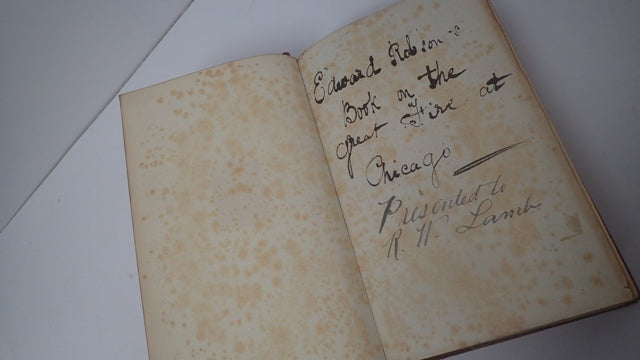 Edward Robson's
Book on the
great Fire at
Chicago
Presented to
R. W. Lamb